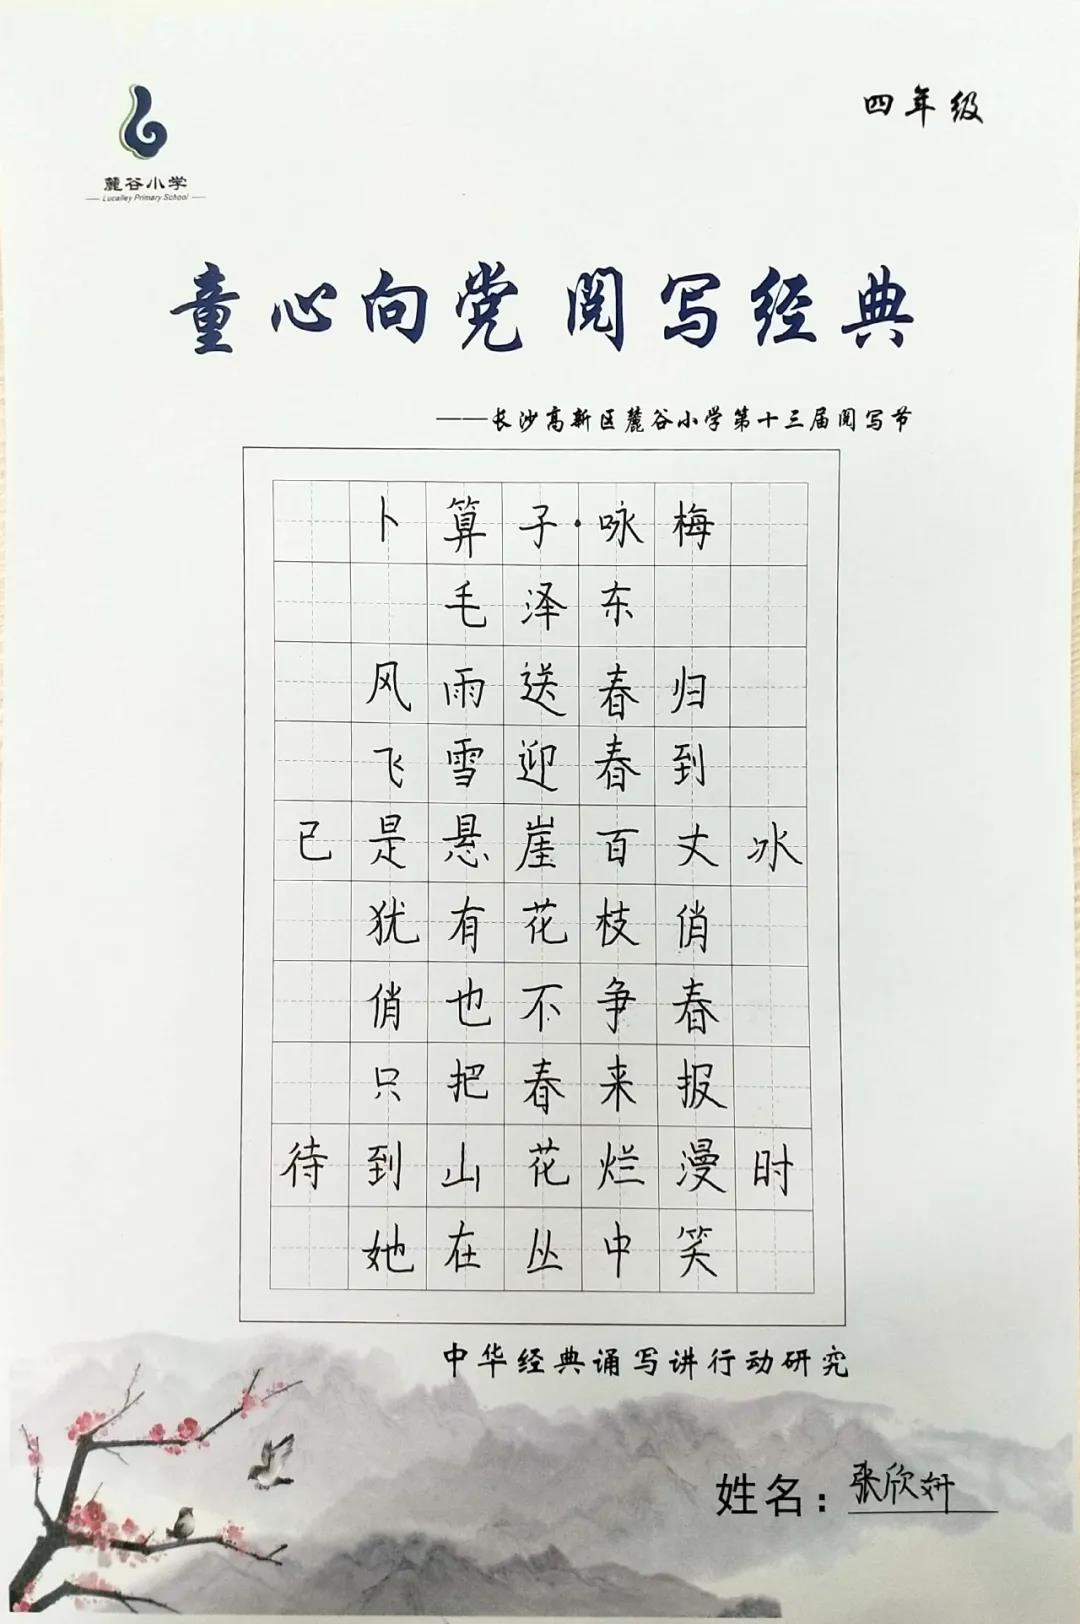 四年级
麓谷小学
Lucalley Primary School
童心向党 阅写经典
——长沙高新区麓谷小学第十三届阅写节
卜算子·咏梅
毛泽东
风雨送春归
飞雪迎春到
已是悬崖百丈冰
犹有花枝俏
俏也不争春
只把春来报
待到山花烂漫时
她在丛中笑
中华经典诵写讲行动研究
姓名：张欣妍